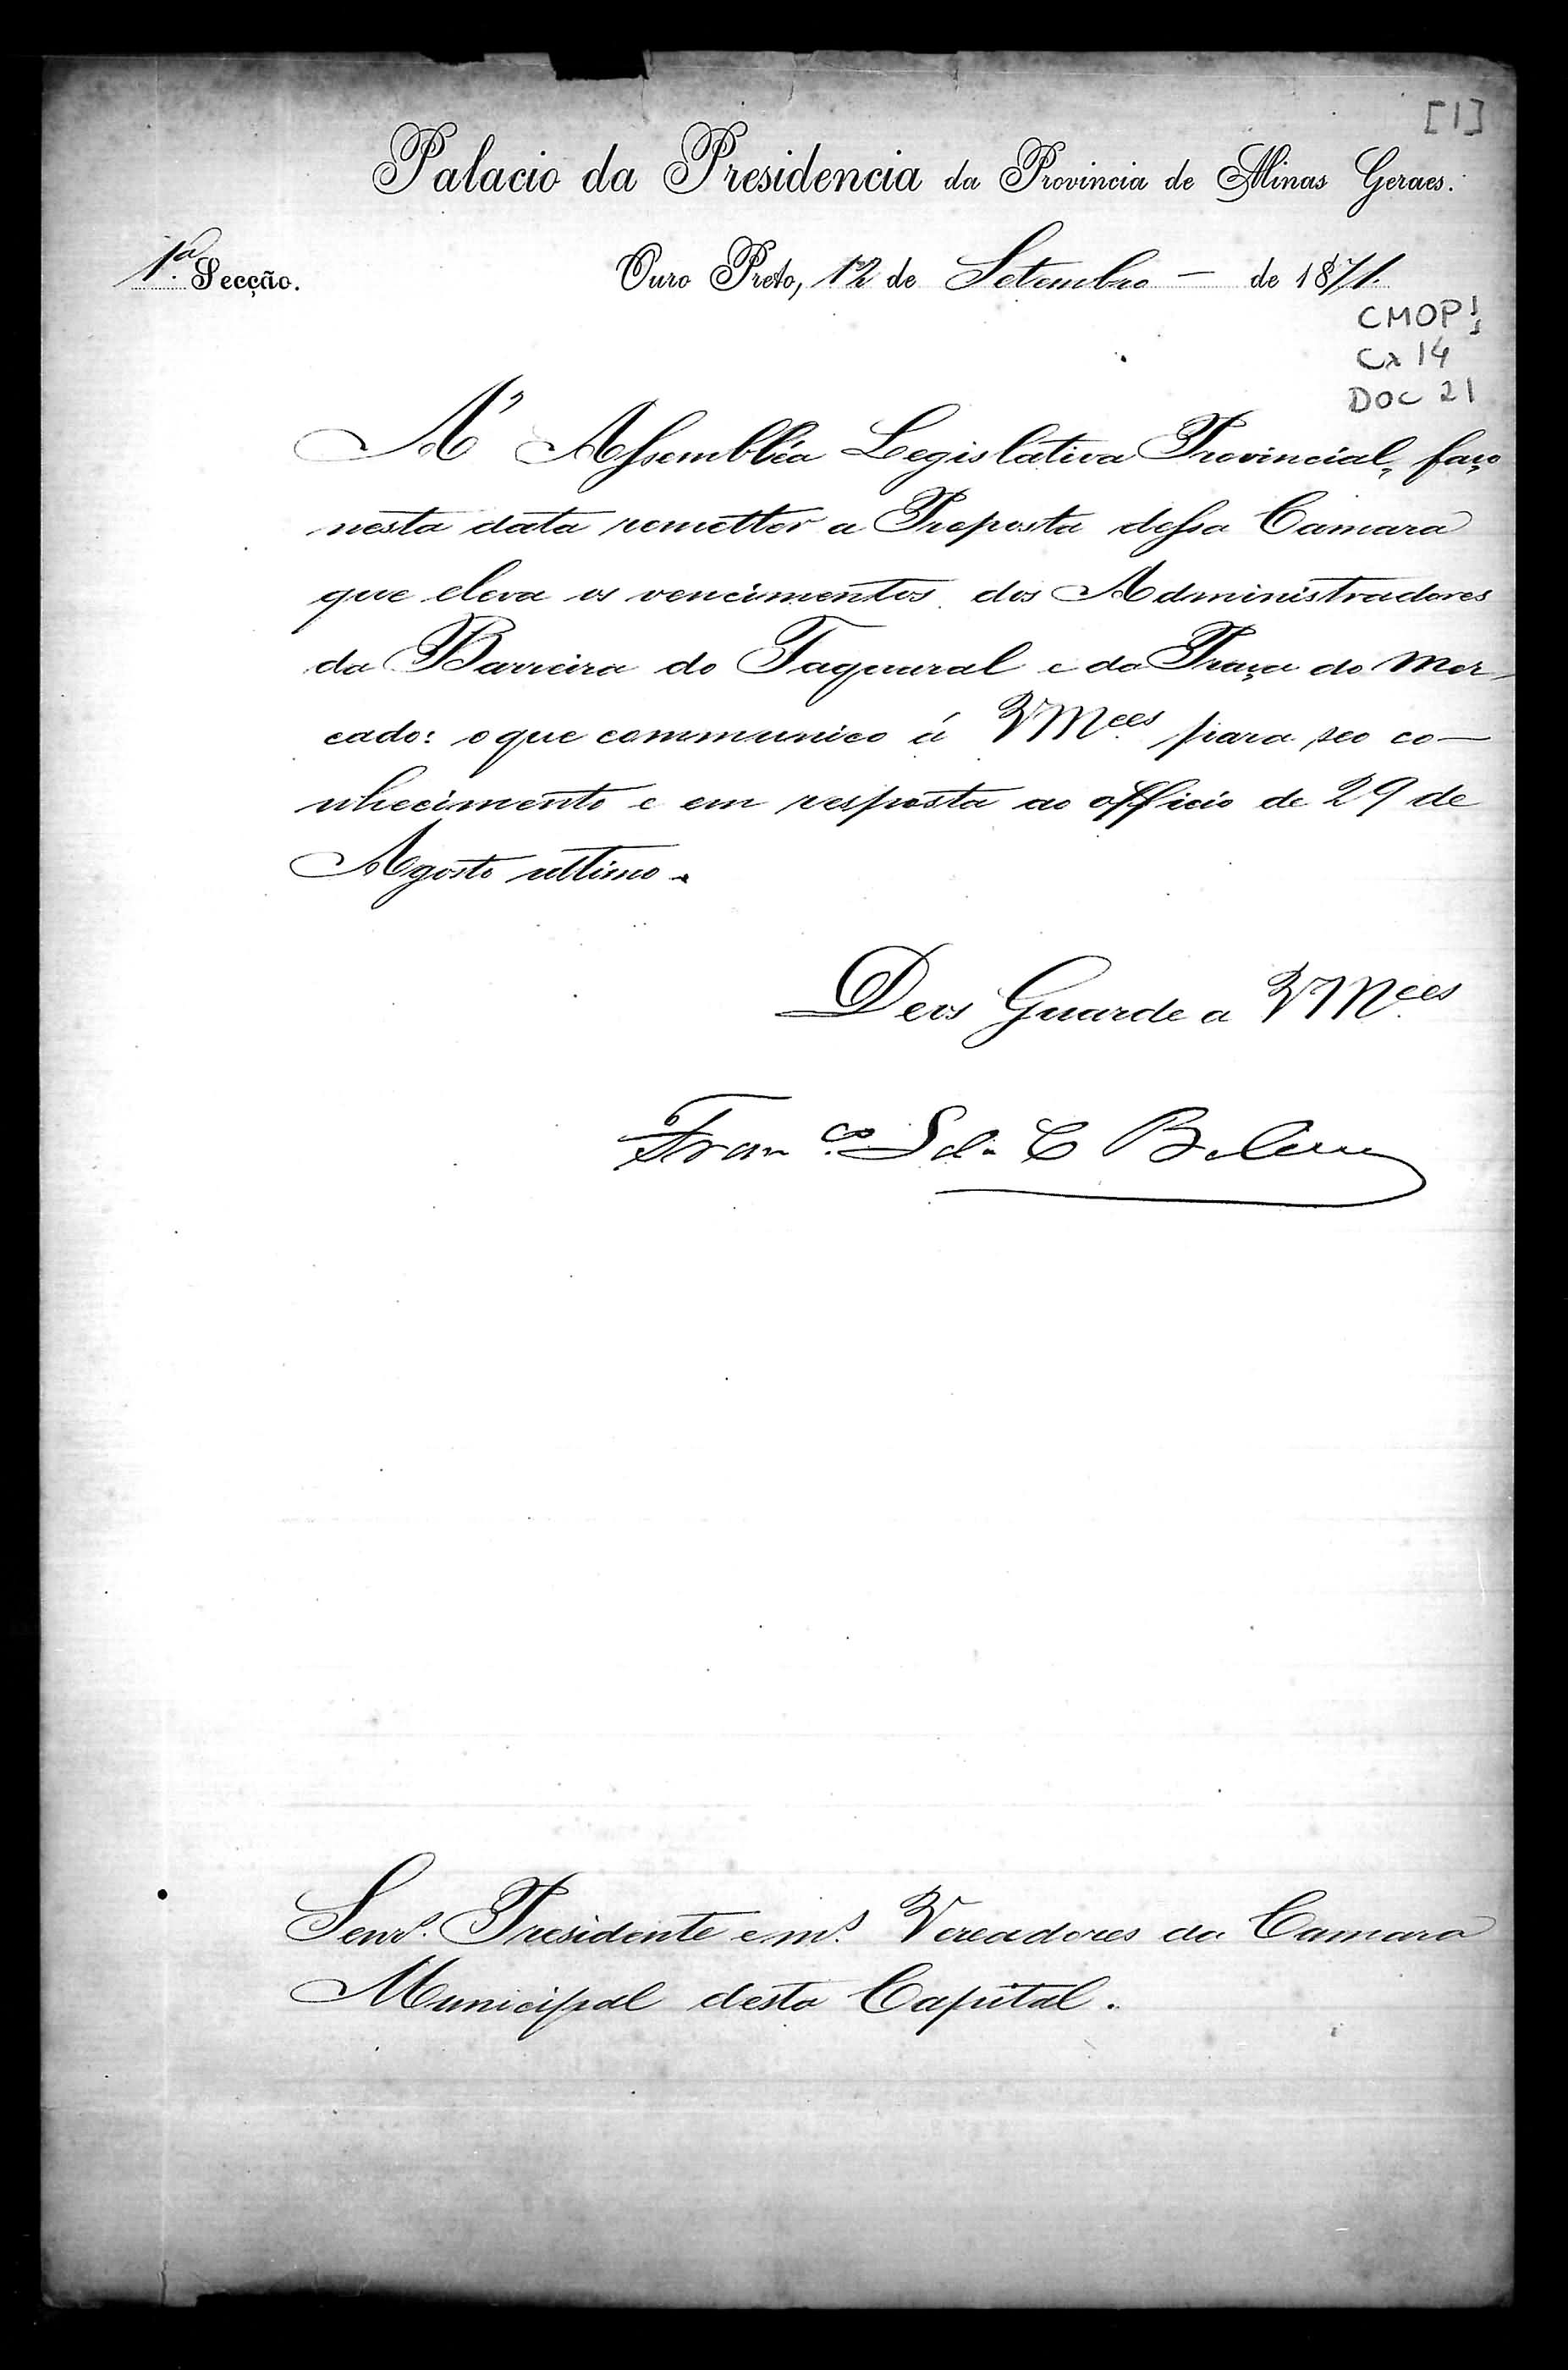 [1]
Palacio da Presidencia da Provincia de Minas Geraes.
1ª Secção.
Ouro Preto, 12 de Setembro — de 1871.
CMOP
Cx 14
DOC 21
A' Assembléa Legislativa Provincial, faço
nesta data remetter a Proposta dessa Camara
que eleva os vencimentos dos Administradores
da Barreira do Taquaral e da Praça do Mer-
cado: o que communico á VM.ces para seo co-
nhecimento e em resposta ao officio de 29 de
Agosto ultimo.
Deos Guarde a VM.ces
Fran.co
Senr.s Presidente e m.s Vereadores da Camara
Municipal desta Capital.